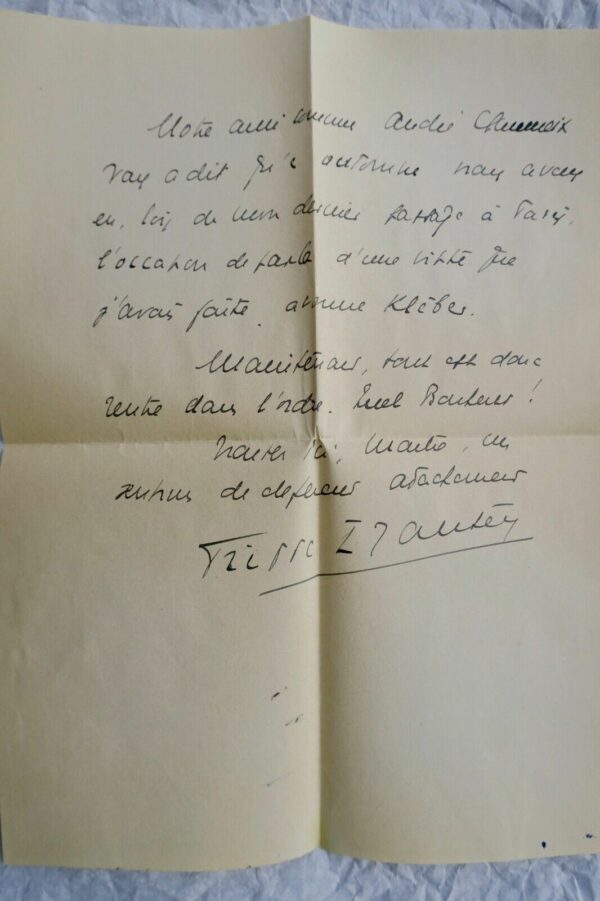 Notre ami commun André Chaumeix
vous a dit qu'à automne nous avons
eu, lors de mon dernier passage à Paris,
l'occasion de parler d'une visite que
j'avais faite avenue Kléber.
Maintenant, tout est donc
rentré dans l'ordre. Quel Bonheur !
Trouvez ici, Maître, mes
sentiments de déférent attachement